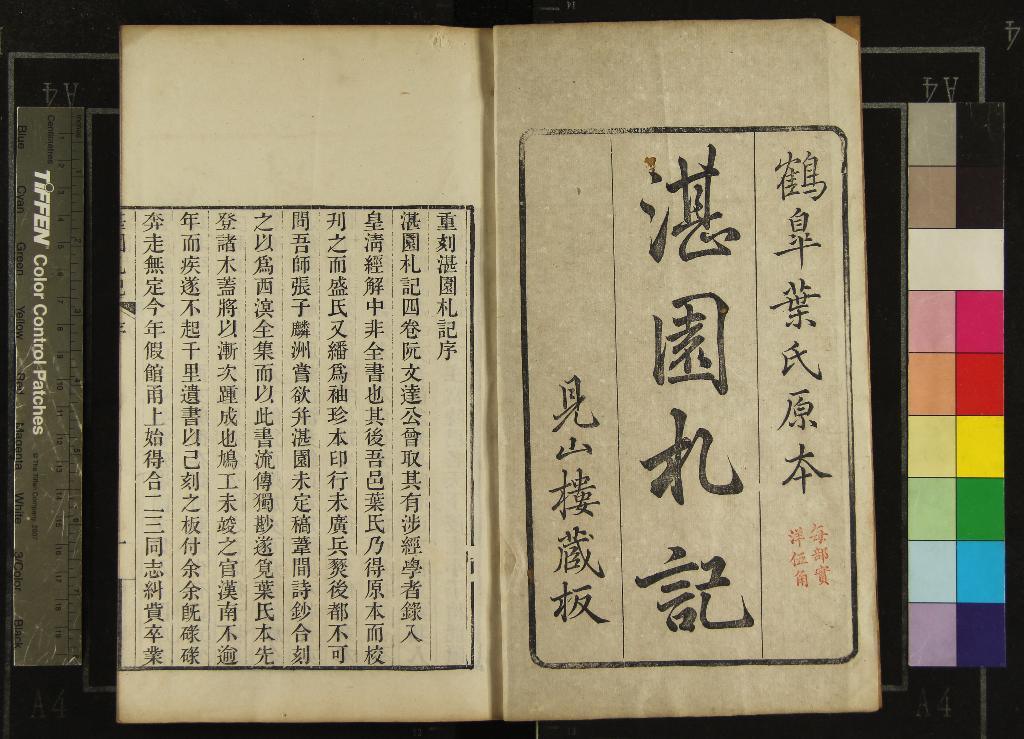 鶴皐葉氏原本
每部實
洋伍角
湛園札記
見山樓藏板
重刻湛園札記序
湛園札記四卷阮文達公曾取其有涉經學者錄入
皇淸經解中非全書也其後吾邑葉氏乃得原本而校
刋之而盛氏又繙爲袖珍本印行未廣兵燹後都不可
問吾師張子麟洲嘗欲弁湛園未定稿葦間詩鈔合刻
之以爲西溟全集而以此書流傳獨尠遂覓葉氏本先
登諸木蓋將以漸次踵成也鳩工未竣之官漢南不逾
年而疾遂不起千里遺書以已刻之板付余余旣碌碌
奔走無定今年假館甬上始得合二三同志糾貲卒業
序
一
TIFFEN Color Control Patches
© The Tiffen Company, 2007
Centimetres
Blue
Cyan
Green
Yellow
Red
Magenta
White
3/Color
Black
A4
A4
A4
A4